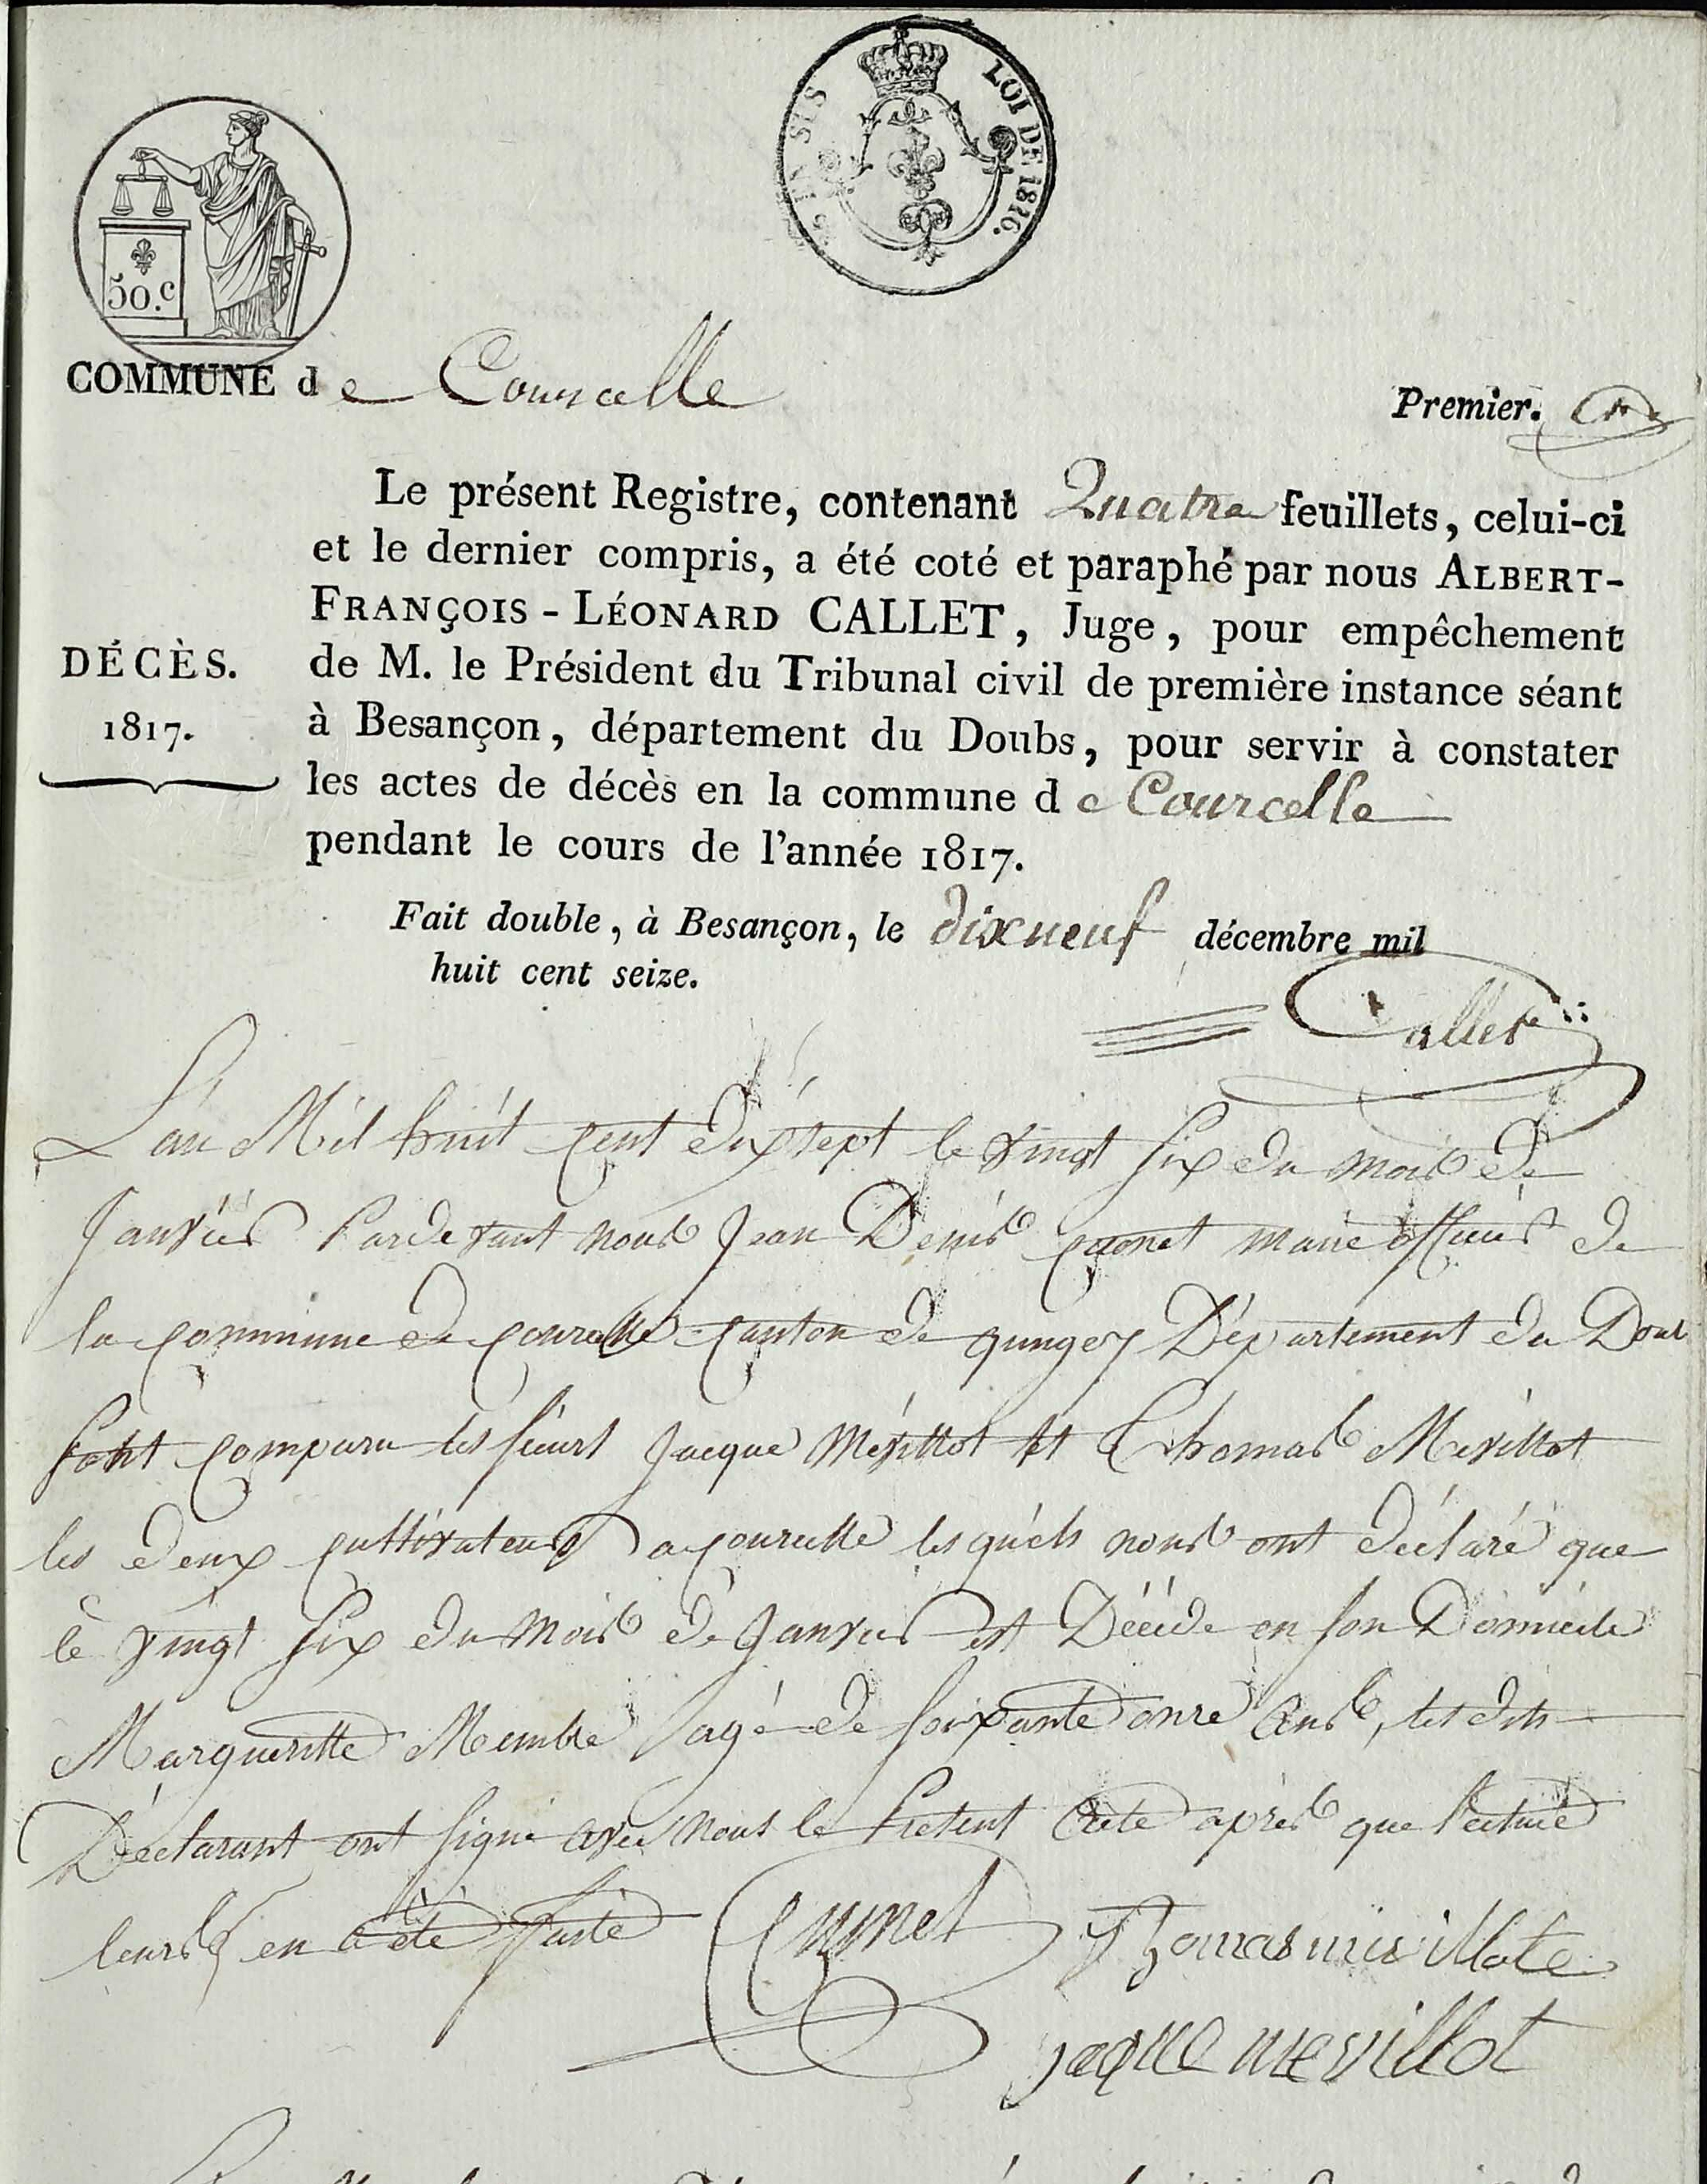 EN SUS
LOI DE 1816.
50.c
COMMUNE de Courcelle
Premier.
Le présent Registre, contenant Quatre feuillets, celui-ci
et le dernier compris, a été coté et paraphé par nous ALBERT-
FRANÇOIS-LÉONARD CALLET, Juge, pour empêchement
DÉCÈS.
de M. le Président du Tribunal civil de première instance séant
1817.
à Besançon, département du Doubs, pour servir à constater
les actes de décès en la commune de Courcelle
pendant le cours de l'année 1817.
Fait double, à Besançon, le dixneuf décembre mil
huit cent seize.
Callet
L'an Mil huit cent dixsept le vingt six du mois de
Janvier Pardevant nous Jean Denis maire officier de
la commune de courcelle canton de qungey Département du Doub
sont comparu les sieurs Jacque Mévillot et Thomas Mevillot
les deux cultivateurs a courcelle lesquels nous ont déclaré que
le vingt six du mois de Janvier est Décédé en son Domicile
Margueritte agé de soixante onze ans, les dits
Déclarant ont signé avec nous le Présent acte après que lecture
leurs en a été faite
Thomas mevillote
jaque mevillot